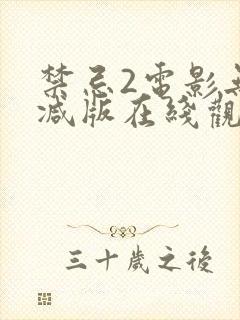 禁忌2電影無
減版在綫觀
三十歲之後